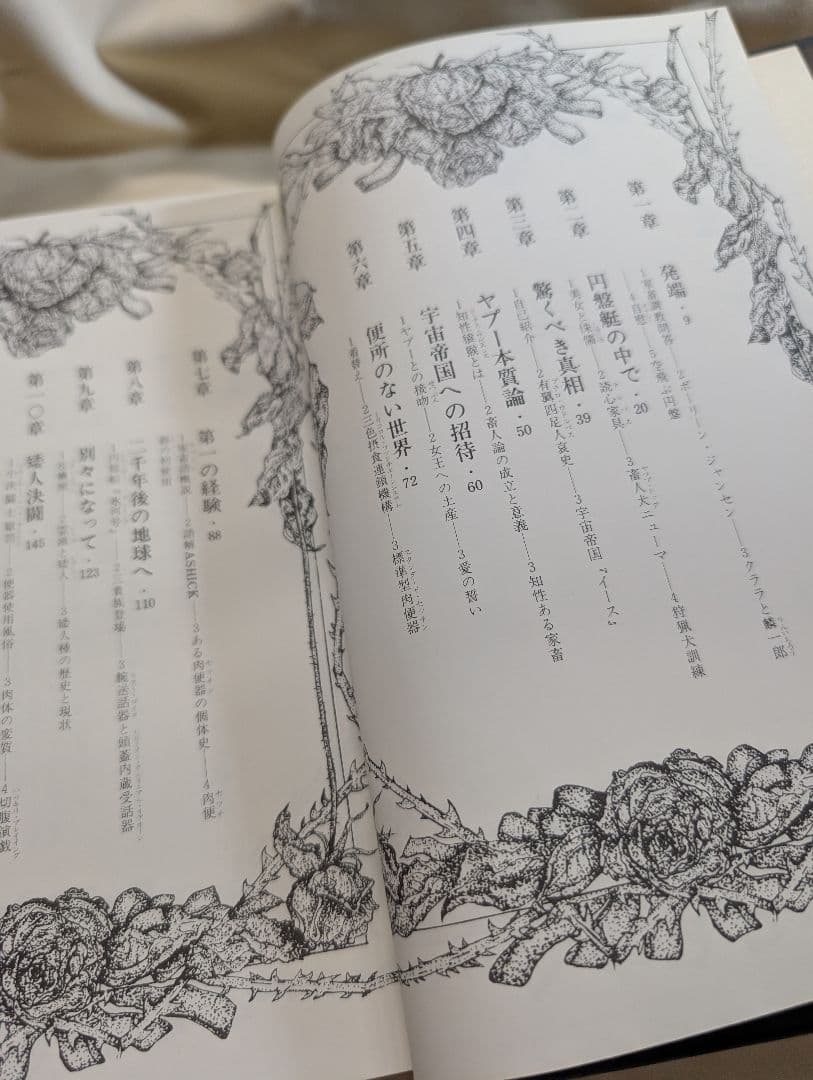 第一章
発端・9
2ポーリーン・ジャンセン――3クララと麟一郎
4自慰――5空飛ぶ円盤
第二章
円盤艇の中で・20
1美女と侏儒――2読心家具――3畜人犬ニューマ――4狩猟犬訓練
第三章
驚くべき真相・39
1自己紹介――2有翼四足人哀史――3宇宙帝国〝イース〟
第四章
ヤプー本質論・50
1知性猿猴とは――2畜人論の成立と意義――3知性ある家畜
第五章
宇宙帝国への招待・60
1ヤプーとの接吻――2女王への土産――3愛の誓い
第六章
便所のない世界・72
1着替え――2三色摂食連鎖機構――3標準型肉便器
第七章
第一の経験・88
2語解ASHICK――3ある肉便器の個体史――4肉便
第八章
二千年後の地球へ・110
2三貴族登場――3輸送話器と頭蓋内蔵受話器
第九章
別々になって・123
3矮人種の歴史と現状
第一〇章
矮人決闘・145
2便器使用風俗――3肉体の変質――4切腹演戯